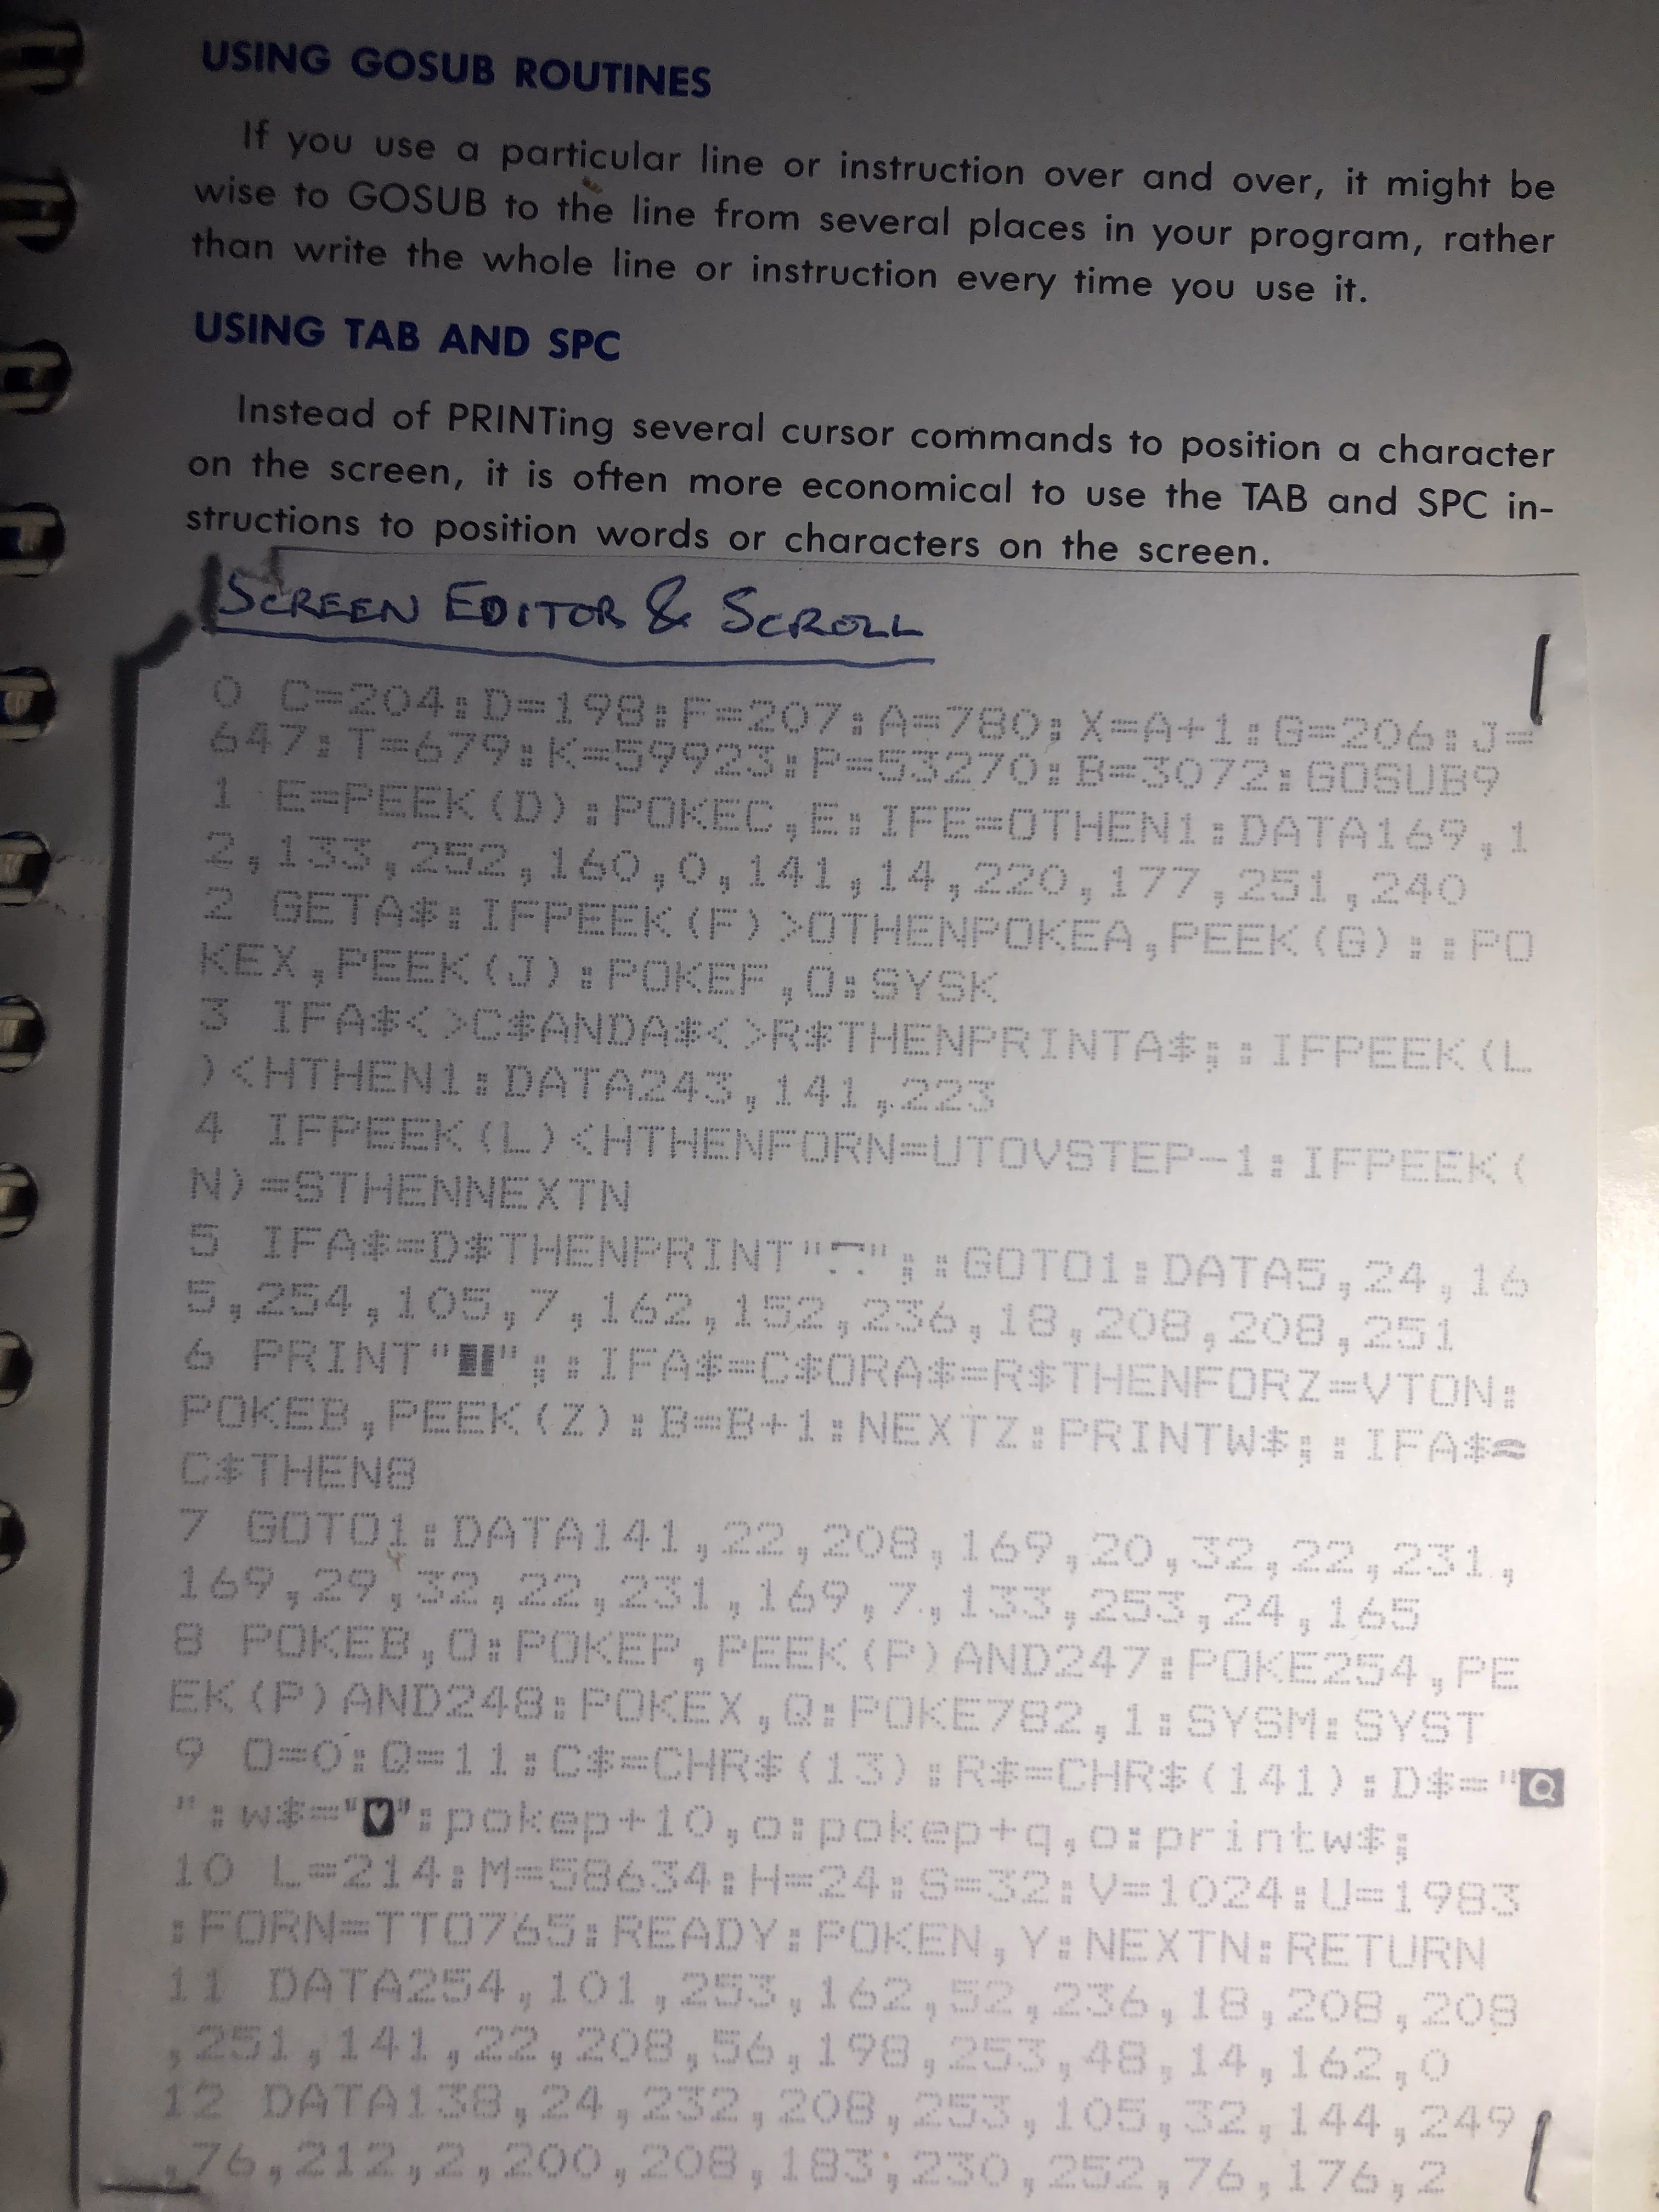 USING GOSUB ROUTINES
If you use a particular line or instruction over and over, it might be
wise to GOSUB to the line from several places in your program, rather
than write the whole line or instruction every time you use it.
USING TAB AND SPC
Instead of PRINTing several cursor commands to position a character
on the screen, it is often more economical to use the TAB and SPC in-
structions to position words or characters on the screen.
SCREEN EDITOR & SCROLL
0 C=204:D=198:F=207:A=780:X=A+1:G=206:J=
647:T=679:K=59923:P=53270:B=3072:GOSUB9
1 E=PEEK(D):POKEC,E:IFE=0THEN1:DATA169,1
2,133,252,160,0,141,14,220,177,251,240
2 GETA$:IFPEEK(F)>0THENPOKEA,PEEK(G)::PO
KEX,PEEK(J):POKEF,0:SYSK
3 IFA$<>C$ANDA$<>R$THENPRINTA$;:IFPEEK(L
)<HTHEN1:DATA243,141,223
4 IFPEEK(L)<HTHENFORN=UTOVSTEP-1:IFPEEK(
N)=STHENNEXTN
5 IFA$=D$THENPRINT"";:GOTO1:DATA5,24,16
5,254,105,7,162,152,236,18,208,208,251
6 PRINT"";:IFA$=C$ORA$=R$THENFORZ=VTON:
POKEB,PEEK(Z):B=B+1:NEXTZ:PRINTW$;:IFA$=
C$THEN8
7 GOTO1:DATA141,22,208,169,20,32,22,231,
169,29,32,22,231,169,7,133,253,24,165
8 POKEB,0:POKEP,PEEK(P)AND247:POKE254,PE
EK(P)AND248:POKEX,Q:POKE782,1:SYSM:SYST
9 O=0:Q=11:C$=CHR$(13):R$=CHR$(141):D$="Q
":w$="♥":pokep+10,o:pokep+q,o:printw$;
10 L=214:M=58634:H=24:S=32:V=1024:U=1983
:FORN=TTO765:READY:POKEN,Y:NEXTN:RETURN
11 DATA254,101,253,162,52,236,18,208,208
,251,141,22,208,56,198,253,48,14,162,0
12 DATA138,24,232,208,253,105,32,144,249
,76,212,2,200,208,183,230,252,76,176,2